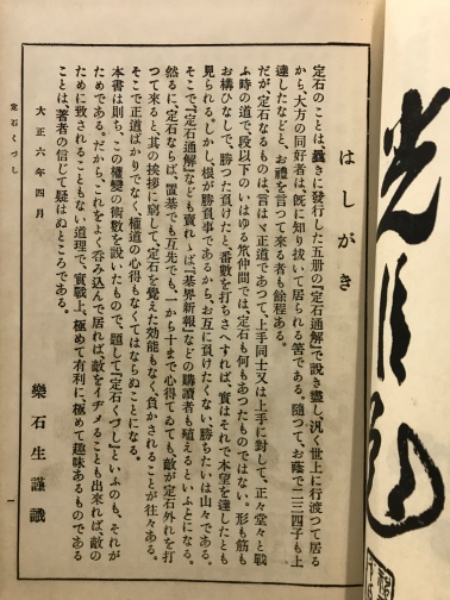 はしがき
定石のことは、曩きに發行した五册の『定石通解』で說き盡し、汎く世上に行渡つて居る
から、大方の同好者は、旣に知り拔いて居られる筈である。隨つて、お蔭で二三四子も上
達したなどと、お禮を言つて來る者も餘程ある。
だが、定石なるものは、言はゞ正道であつて、上手同士又は上手に對して、正々堂々と戰
ふ時の道で、段以下のいはゆる笊仲間では、定石も何もあつたものではない。形も筋も
お構ひなしで、勝つた負けたと、番數を打ちさへすれば、實はそれで本望を達したとも
見られる。しかし、根が勝負事であるから、お互に負けたくない、勝ちたいは山々である。
そこで『定石通解』なども賣れゝば『棊界新報』などの購讀者も殖えるといふとになる。
然るに、定石ならば、置棊でも互先でも、一から十まで心得てゐても、敵が定石外れを打
つて來ると、其の挨拶に窮して、定石を覺えた効能もなく、負かされることが往々ある。
そこで正道ばかりでなく、權道の心得もなくてはならぬことになる。
本書は則ち、この權變の術數を說いたもので、題して『定石くづし』といふのも、それが
ためである。だから、これをよく呑み込んで居れば、敵をイヂメることも出來れば、敵の
ために致されることもない道理で、實戰上、極めて有利に、極めて趣味あるものである
ことは、著者の信じて疑はぬところである。
大正六年四月
樂石生謹識
定石くづし
一